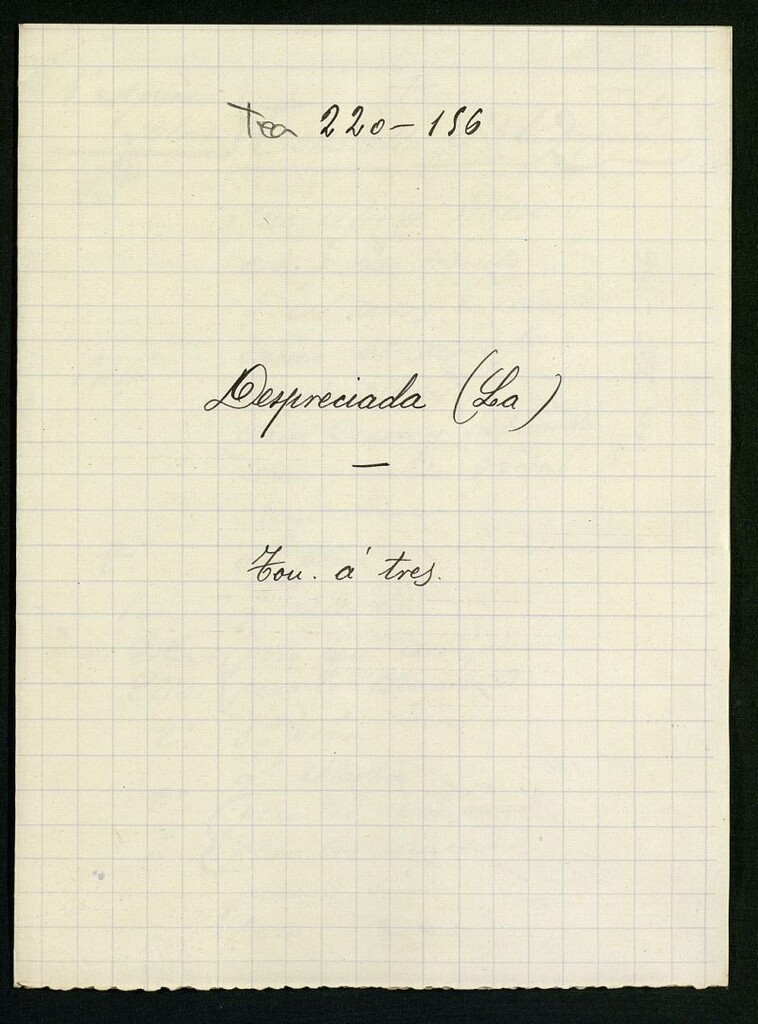 Tea 220-156
Despreciada (La)
—
Ton. á tres.